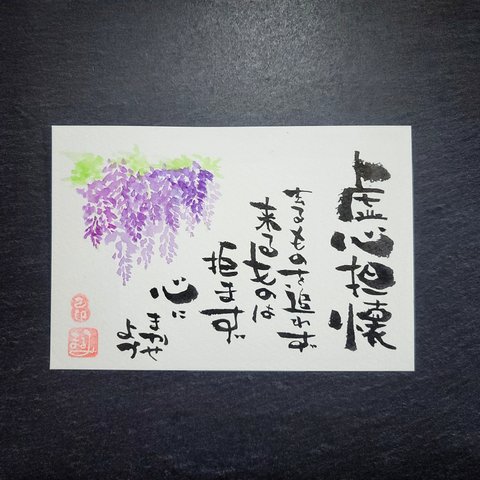 虚心坦懐
去るものを追わず
来るものは
拒まず
心に
まかせ
よう